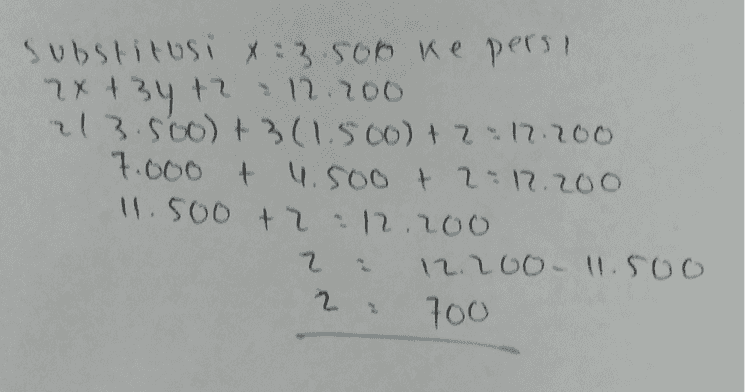 substitusi x = 3.500 ke pers 1
2x + 3y + z = 12.200
2(3.500) + 3(1.500) + z = 12.200
7.000 + 4.500 + z = 12.200
11.500 + z = 12.200
z = 12.200 - 11.500
z = 700